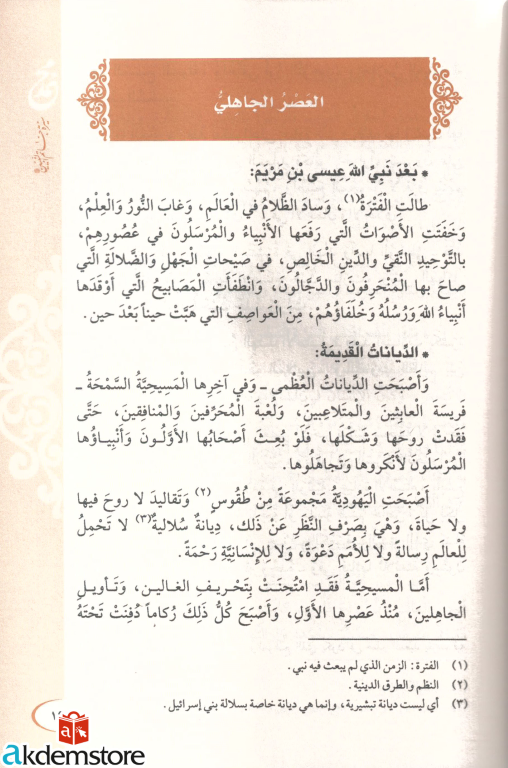 العَصْرُ الجاهِليُّ
* بَعْدَ نَبِيِّ اللهِ عِيسى بْنِ مَرْيَمَ:
طالَتِ الْفَتْرَةُ(١)، وَسادَ الظَّلامُ في الْعَالَمِ، وَغابَ النُّورُ وَالْعِلْمُ،
وَخَفَتَتِ الأَصْوَاتُ الَّتي رَفَعَها الأَنْبِياءُ وَالْمُرْسَلُونَ في عُصُورِهِمْ،
بالتَّوْحِيدِ النَّقِيِّ وَالدِّينِ الْخَالِصِ، في صَيْحاتِ الْجَهْلِ وَالضَّلالَةِ الَّتي
صاحَ بها الْمُنْحَرِفُونَ وَالدَّجَّالُونَ، وَانْطَفَأَتِ الْمَصَابيحُ الَّتي أَوْقَدَها
أَنْبِياءُ اللهِ وَرُسُلُهُ وَخُلَفَاؤُهُمْ، مِنَ الْعَواصِفِ التي هَبَّتْ حيناً بَعْدَ حين.
* الدِّياناتُ الْقَدِيمَةُ:
وَأَصْبَحَتِ الدِّياناتُ الْعُظْمى ـ وَفي آخِرِها الْمَسِيحِيَّةُ السَّمْحَةُ ـ
فَرِيسَةَ الْعابِثينَ والْمتَلاعِبينَ، وَلُعْبَةَ الْمُحَرِّفينَ وَالْمُنافِقينَ، حَتَّى
فَقَدَتْ روحَها وَشَكْلَها، فَلَوْ بُعِثَ أَصْحَابُها الأَوَّلُونَ وَأَنْبِياؤُها
الْمُرْسَلُونَ لأَنْكَروها وَتَجاهَلُوها.
أَصْبَحَتِ الْيَهُودِيَّةُ مَجْمُوعَةً مِنْ طُقُوسٍ(٢) وَتَقاليدَ لا روحَ فيها
ولا حَياةَ، وَهْيَ بِصَرْفِ النَّظَرِ عَنْ ذلك، دِيانَةٌ سُلالِيةٌ(٣) لا تَحْمِلُ
لِلْعالَمِ رِسالةً ولا لِلأُمَمِ دَعْوَةً، وَلا لِلإِنْسَانِيَّةِ رَحْمَةً.
أَمَّا الْمَسيحيَّةُ فَقَدِ امْتُحِنَتْ بِتَحْريفِ الغالين، وَتَأويلِ
الجاهِلينَ، مُنْذُ عَصْرِها الأَوَّلِ، وَأَصْبَحَ كُلُّ ذَلِكَ رُكاماً دُفِنَتْ تَحْتَهُ
(١) الفترة: الزمن الذي لم يبعث فيه نبي.
(٢) النظم والطرق الدينية.
(٣) أي ليست ديانة تبشيرية، وإنما هي ديانة خاصة بسلالة بني إسرائيل.
akdemstore